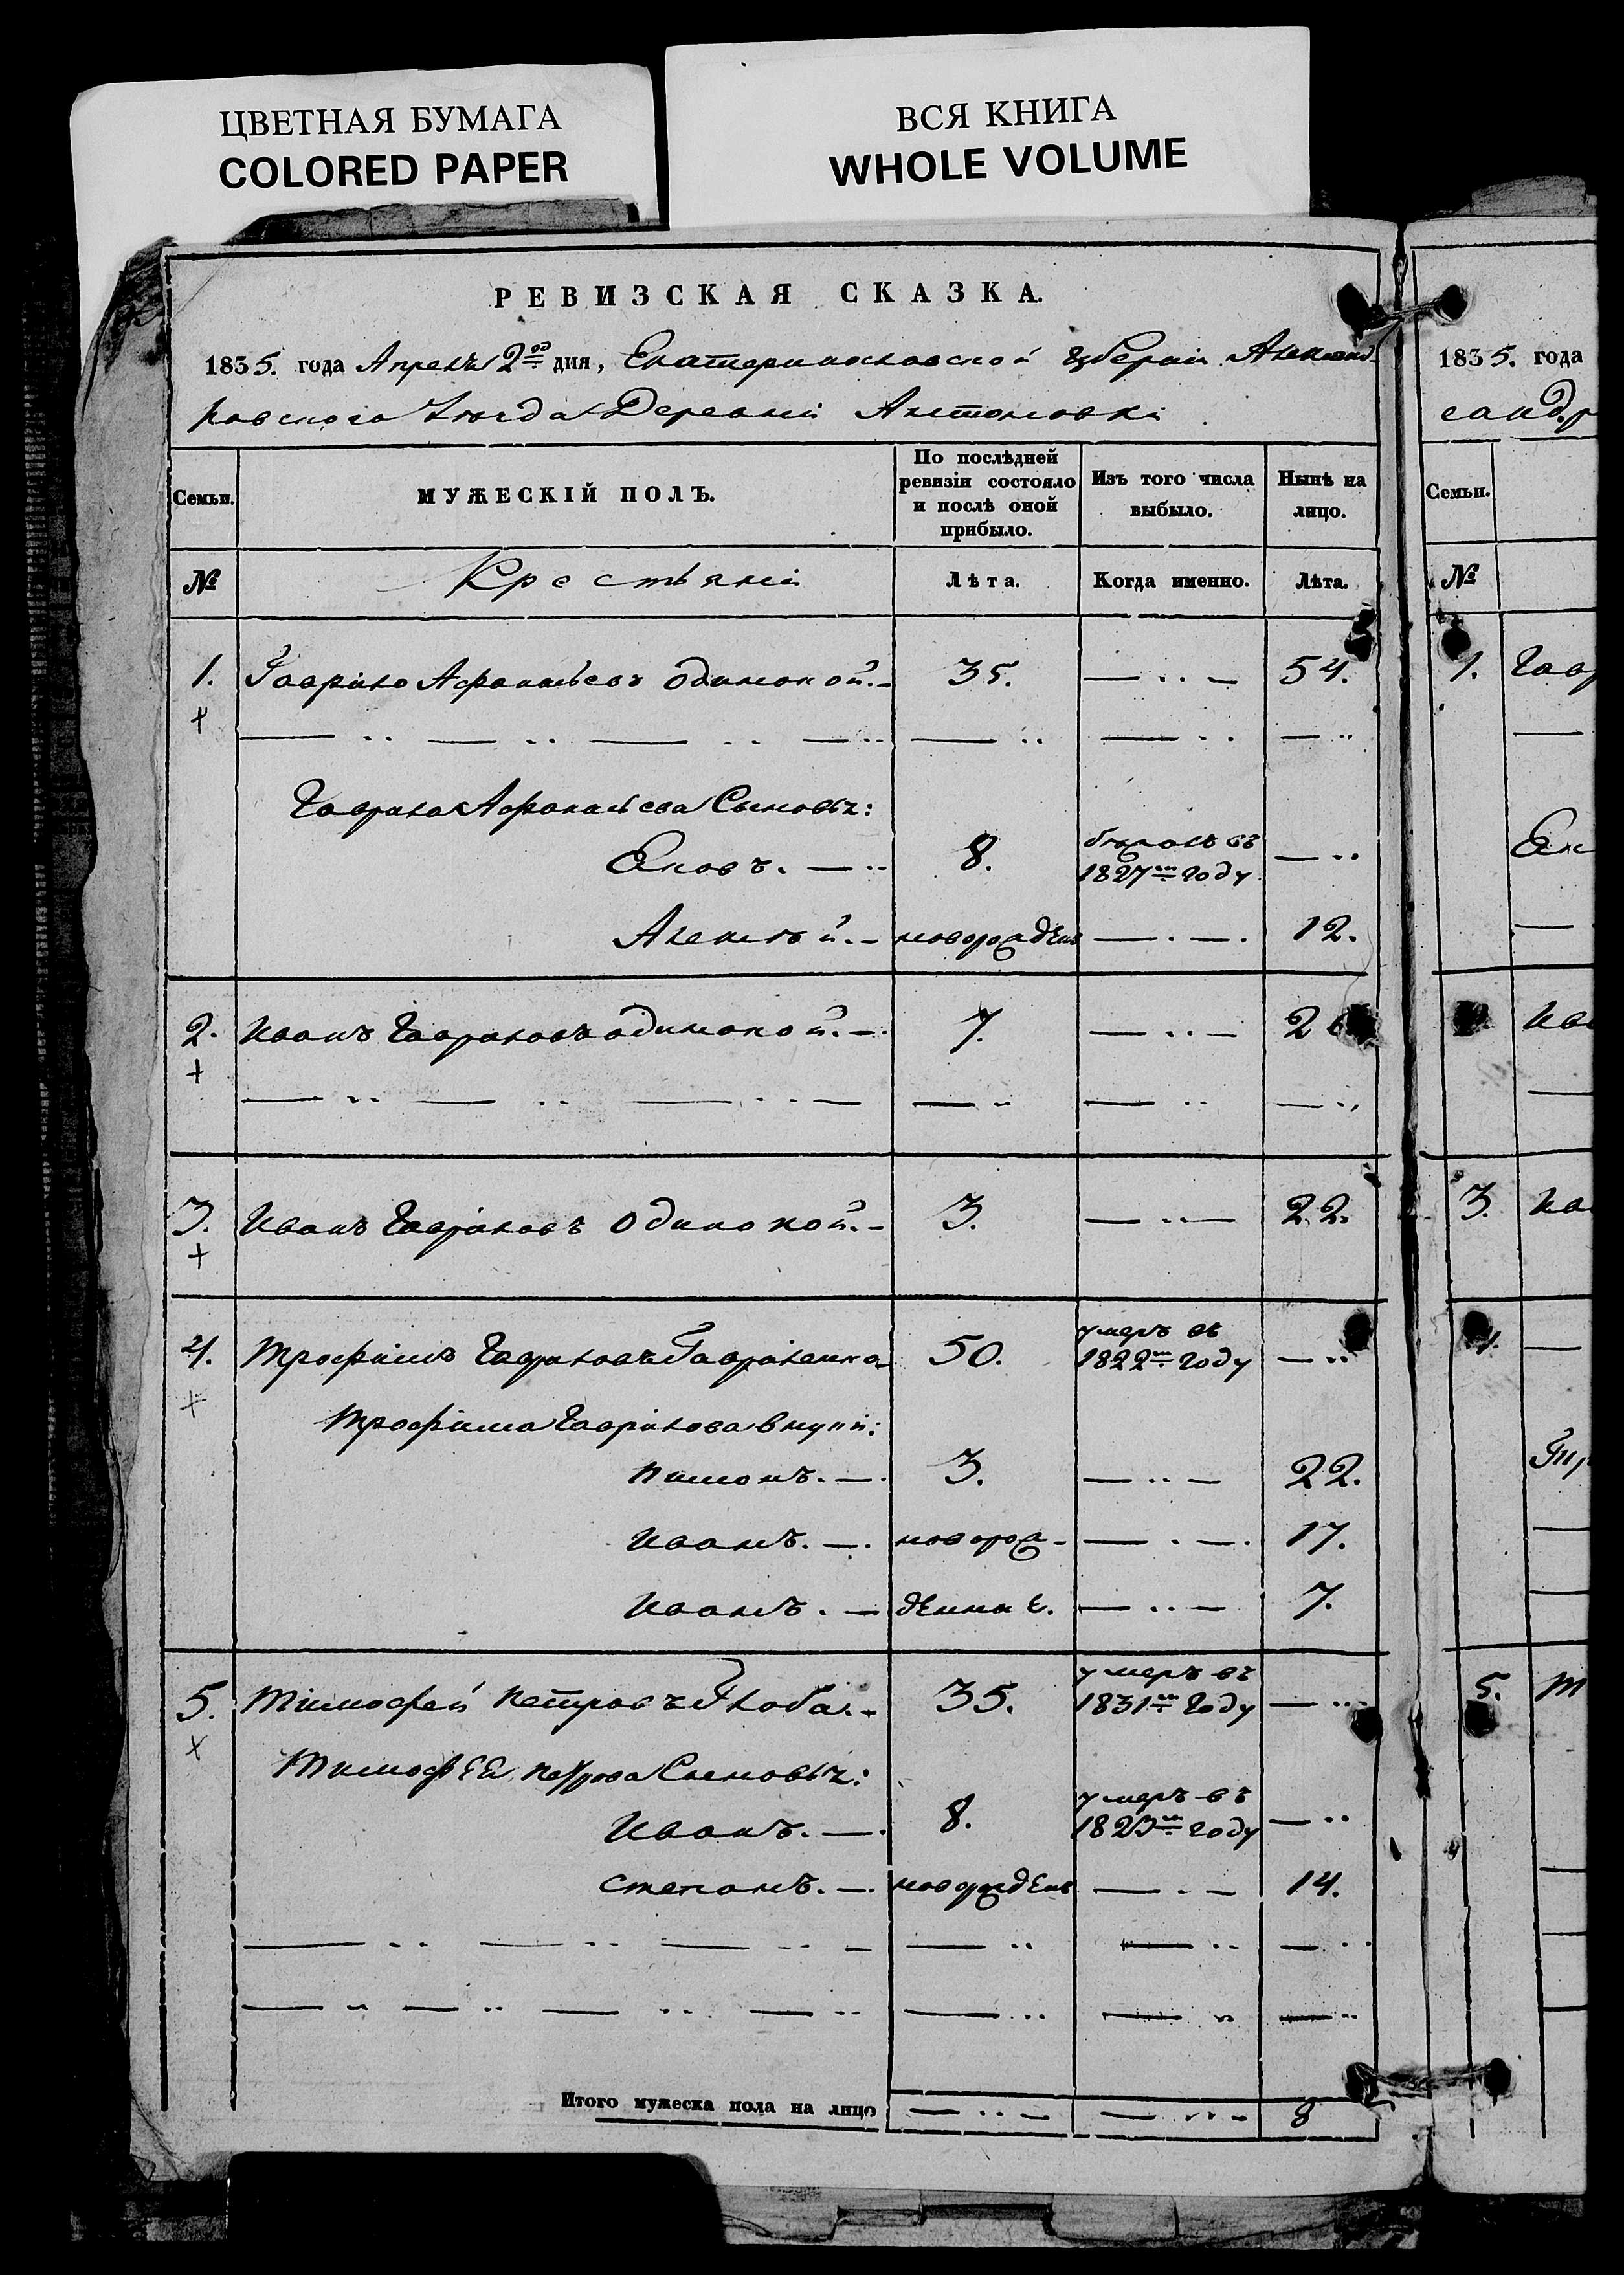 ЦВЕТНАЯ БУМАГА
COLORED PAPER
ВСЯ КНИГА
WHOLE VOLUME
РЕВИЗСКАЯ СКАЗКА.
1835. года Апреля 2го дня, Екатеринославской губернии Александ-
ровского Уезда Деревни Антоновки
Семьи.
МУЖЕСКІЙ ПОЛЪ.
По послѣдней ревизіи состояло и послѣ оной прибыло.
Изъ того числа выбыло.
Нынѣ на лицо.
№
Крестьяни
Лѣта.
Когда именно.
Лѣта.
1. Гаврило Афанасьевъ Одинокой. 35. 54.
Гаврила Афанасьева Сыновья:
Яковъ. 8. бежалъ въ 1827м году
Алексѣй. новорожденъ 12.
2. Иванъ Гавриловъ одинокой. 7. 2
3. Иванъ Гавриловъ Одинокой. 3. 22.
4. Трофимъ Гавриловъ Гавриленко 50. умеръ въ 1822м году
Трофима Гаврилова внуки:
3. 22.
Иванъ. новорож- 17.
Иванъ. денные. 7.
5. Тимофей Петровъ 35. умеръ въ 1831м году
Тимофея Петрова Сыновья:
Иванъ. 8. умеръ въ году
Степанъ. новорожденъ 14.
Итого мужеска пола на лицо 8
1835. года
сандр
Семьи.
№
1. Гавр
3. Ив
5. Т